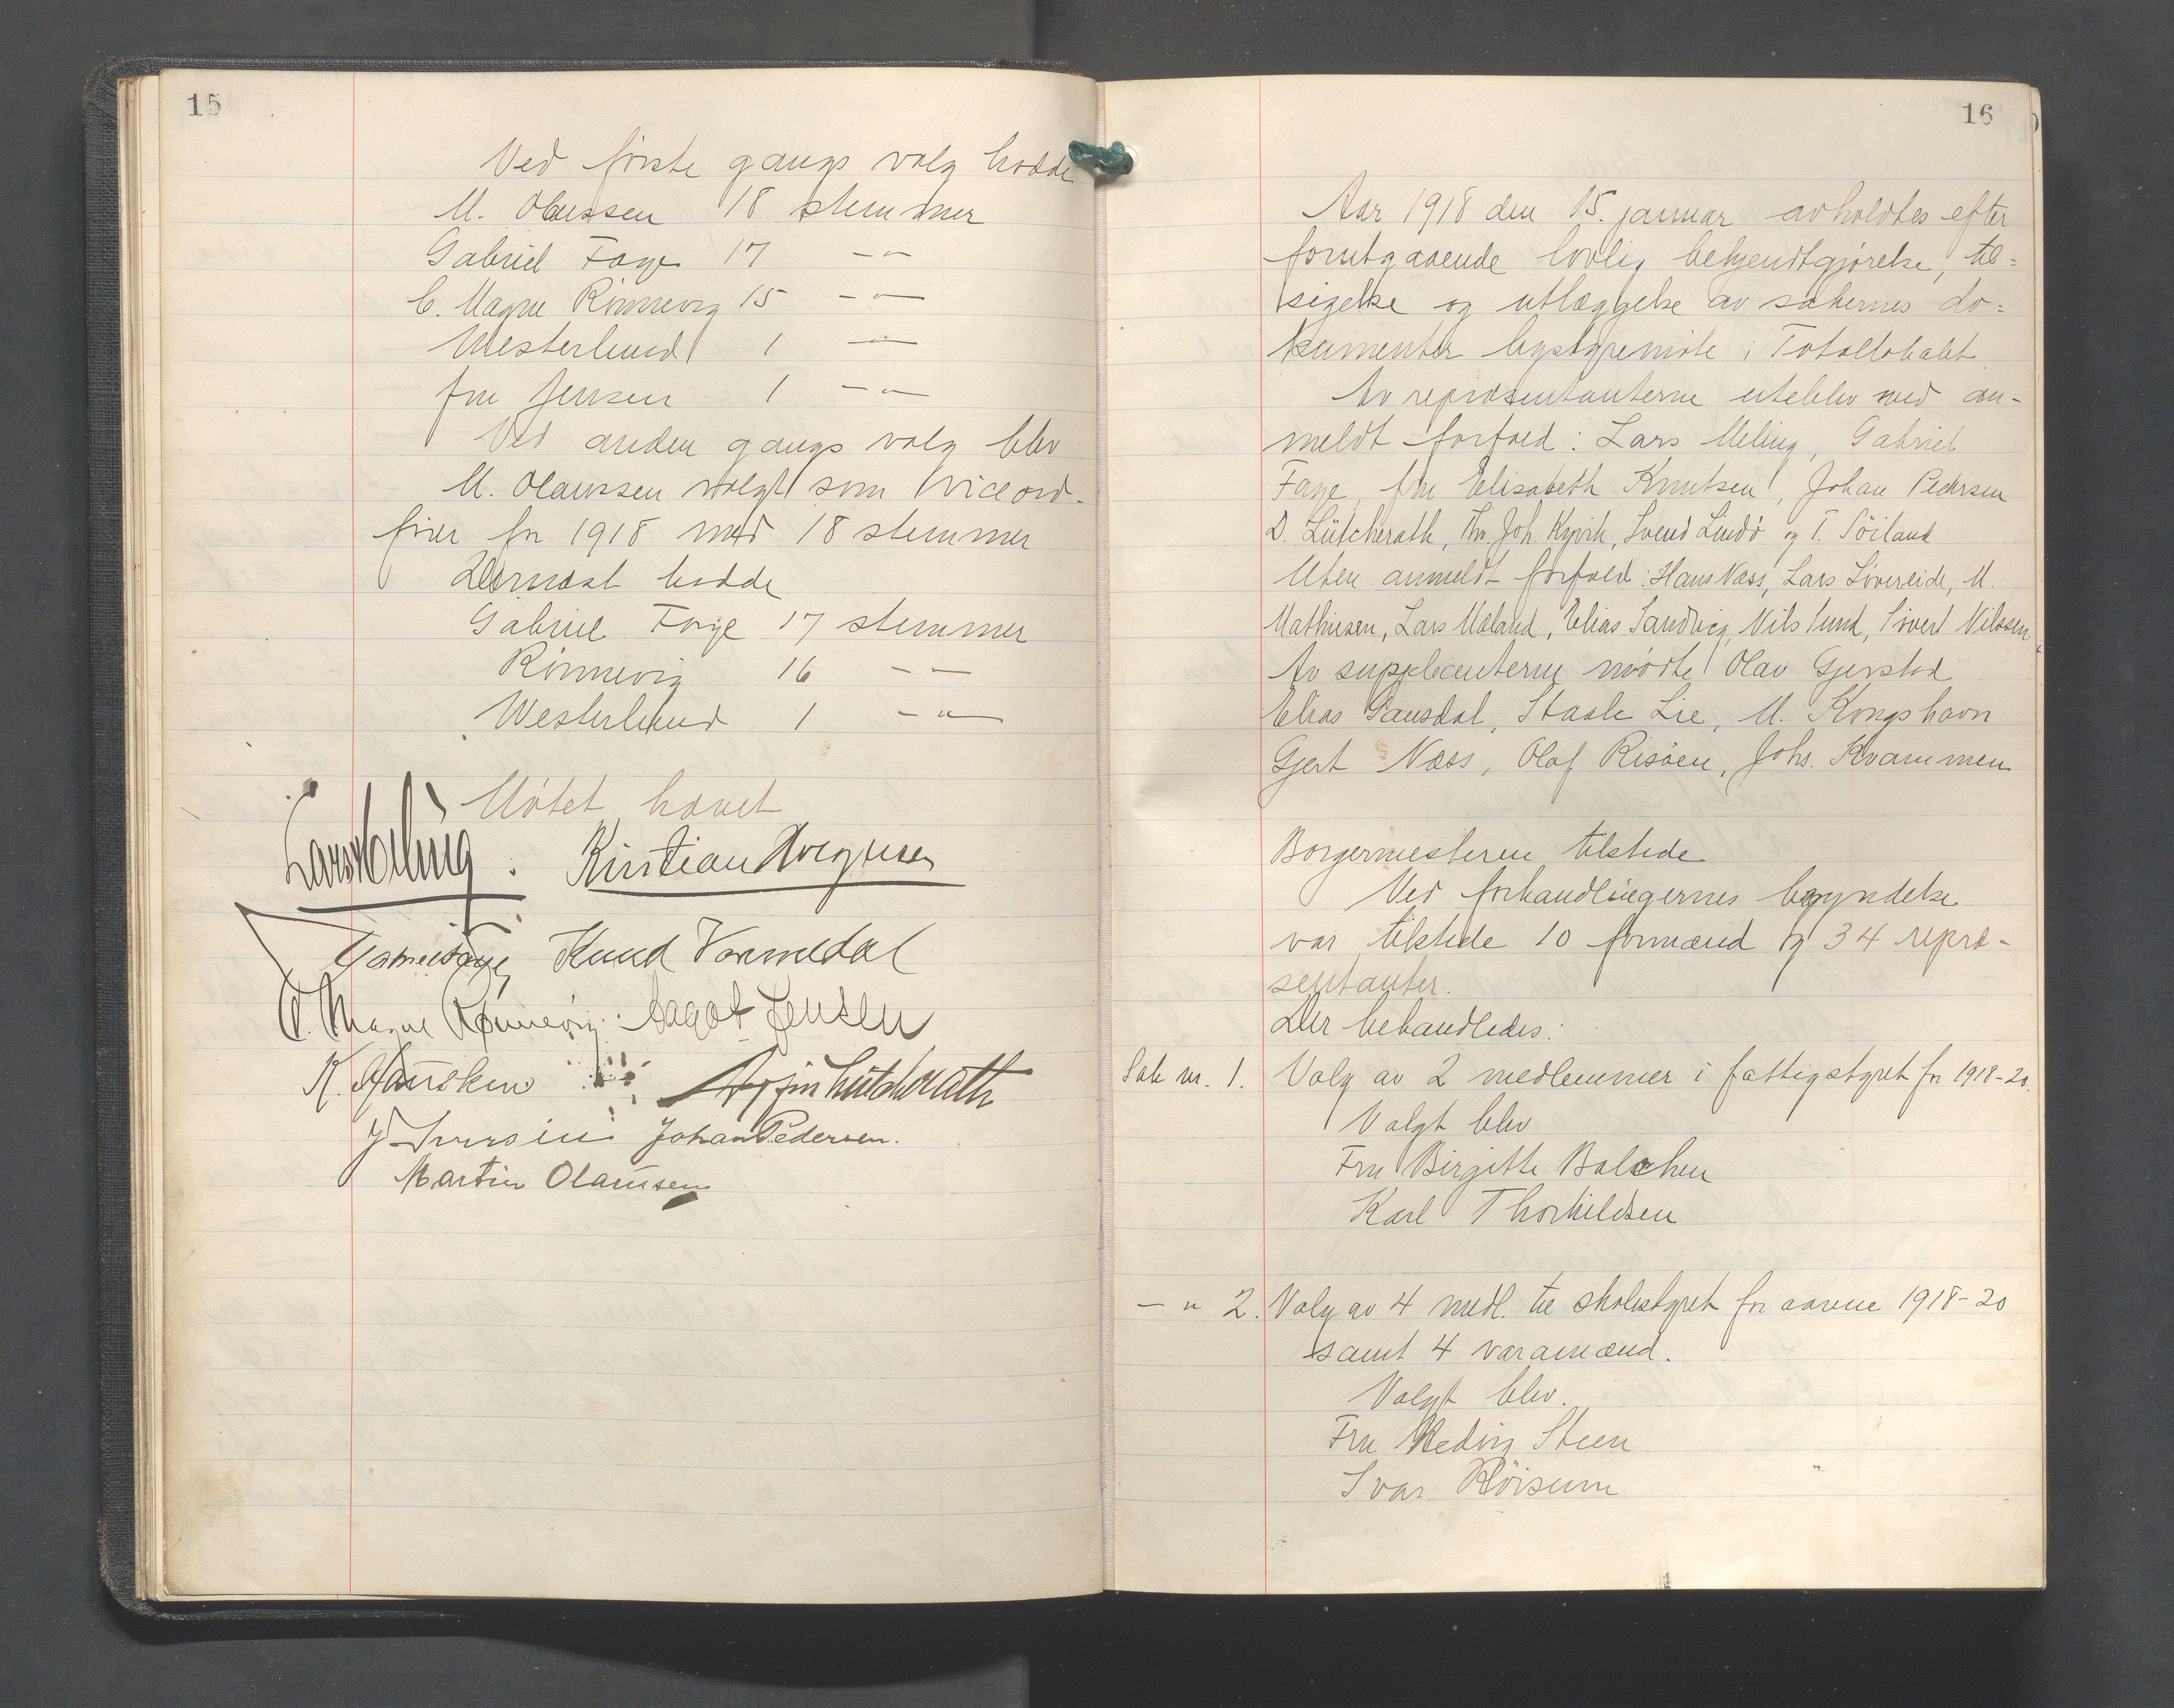 15
Ved første gangs valg hadde
M. Olaussen 18 stemmer
Gabriel Faye 17 —"—
C. Magne Rönnevig 15 —"—
Westerlund 1 —"—
fru Jensen 1 —"—
Ved anden gangs valg blev
M. Olaussen valgt som viceord-
fører for 1918 med 18 stemmer
Dernæst hadde
Gabriel Faye 17 stemmer
Rönnevig 16 — —
Westerlund 1 —"—
Møtet hævet
Lars Meling. Kristian Magnesen
Gabriel Faye Knud Vormedal
C. Magne Rönnevig. Aagot Jensen
K. Lütcherath
J Iversen Johan Pedersen.
Martin Olaussen
16
Aar 1918 den 15. januar avholdtes efter
forutgaaende lovlig bekjendtgjørelse, til=
sigelse og utlæggelse av sakernes do=
kumenter bystyremøte i Totallokalet
Av repræsentanterne uteblev med an-
meldt forfald: Lars Meling, Gabriel
Faye, fru Elisabeth Knutsen, Johan Pedersen
D. Lütcherath, Thv. Joh. Kyvik, Svend Lindö og T. Söiland
Uten anmeldt forfald: Hans Næss, Lars Lövereide, M.
Mathiesen, Lars Mæland, Elias Sandvig, Nils Lund, Sivert Nilssen
Av suppleanterne mødte Olav Gjerstad
Elias Gausdal, Staale Lie, M. Kongshavn
Gjert Næss, Olaf Risöen, Johs. Kvammen
Borgermesteren tilstede
Ved forhandlingernes begyndelse
var tilstede 10 formænd og 34 repræ-
sentanter.
Der behandledes:
Sak nr. 1. Valg av 2 medlemmer i fattigstyret for 1918-20.
Valgt blev
Fru Birgitte Balchen
Karl Thorkildsen
— " 2. Valg av 4 medl. til skolestyret for aarene 1918-20
samt 4 varamænd.
Valgt blev.
Fru Hedvig Steen
Ivar Höisum